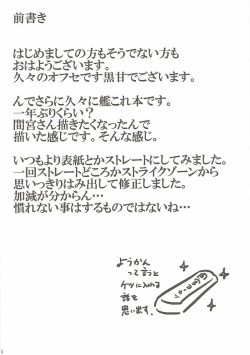 前書き
はじめましての方もそうでない方も
おはようございます。
久々のオフセです黒甘でございます。
んでさらに久々に艦これ本です。
一年ぶりくらい？
間宮さん描きたくなったんで
描いた感じです。そんな感じ。
いつもより表紙とかストレートにしてみました。
一回ストレートどころかストライクゾーンから
思いっきりはみ出して修正しました。
加減が分からん…
慣れない事はするものではないね…
ようかん
って言うと
ケツに入れる
話を
思い出す。